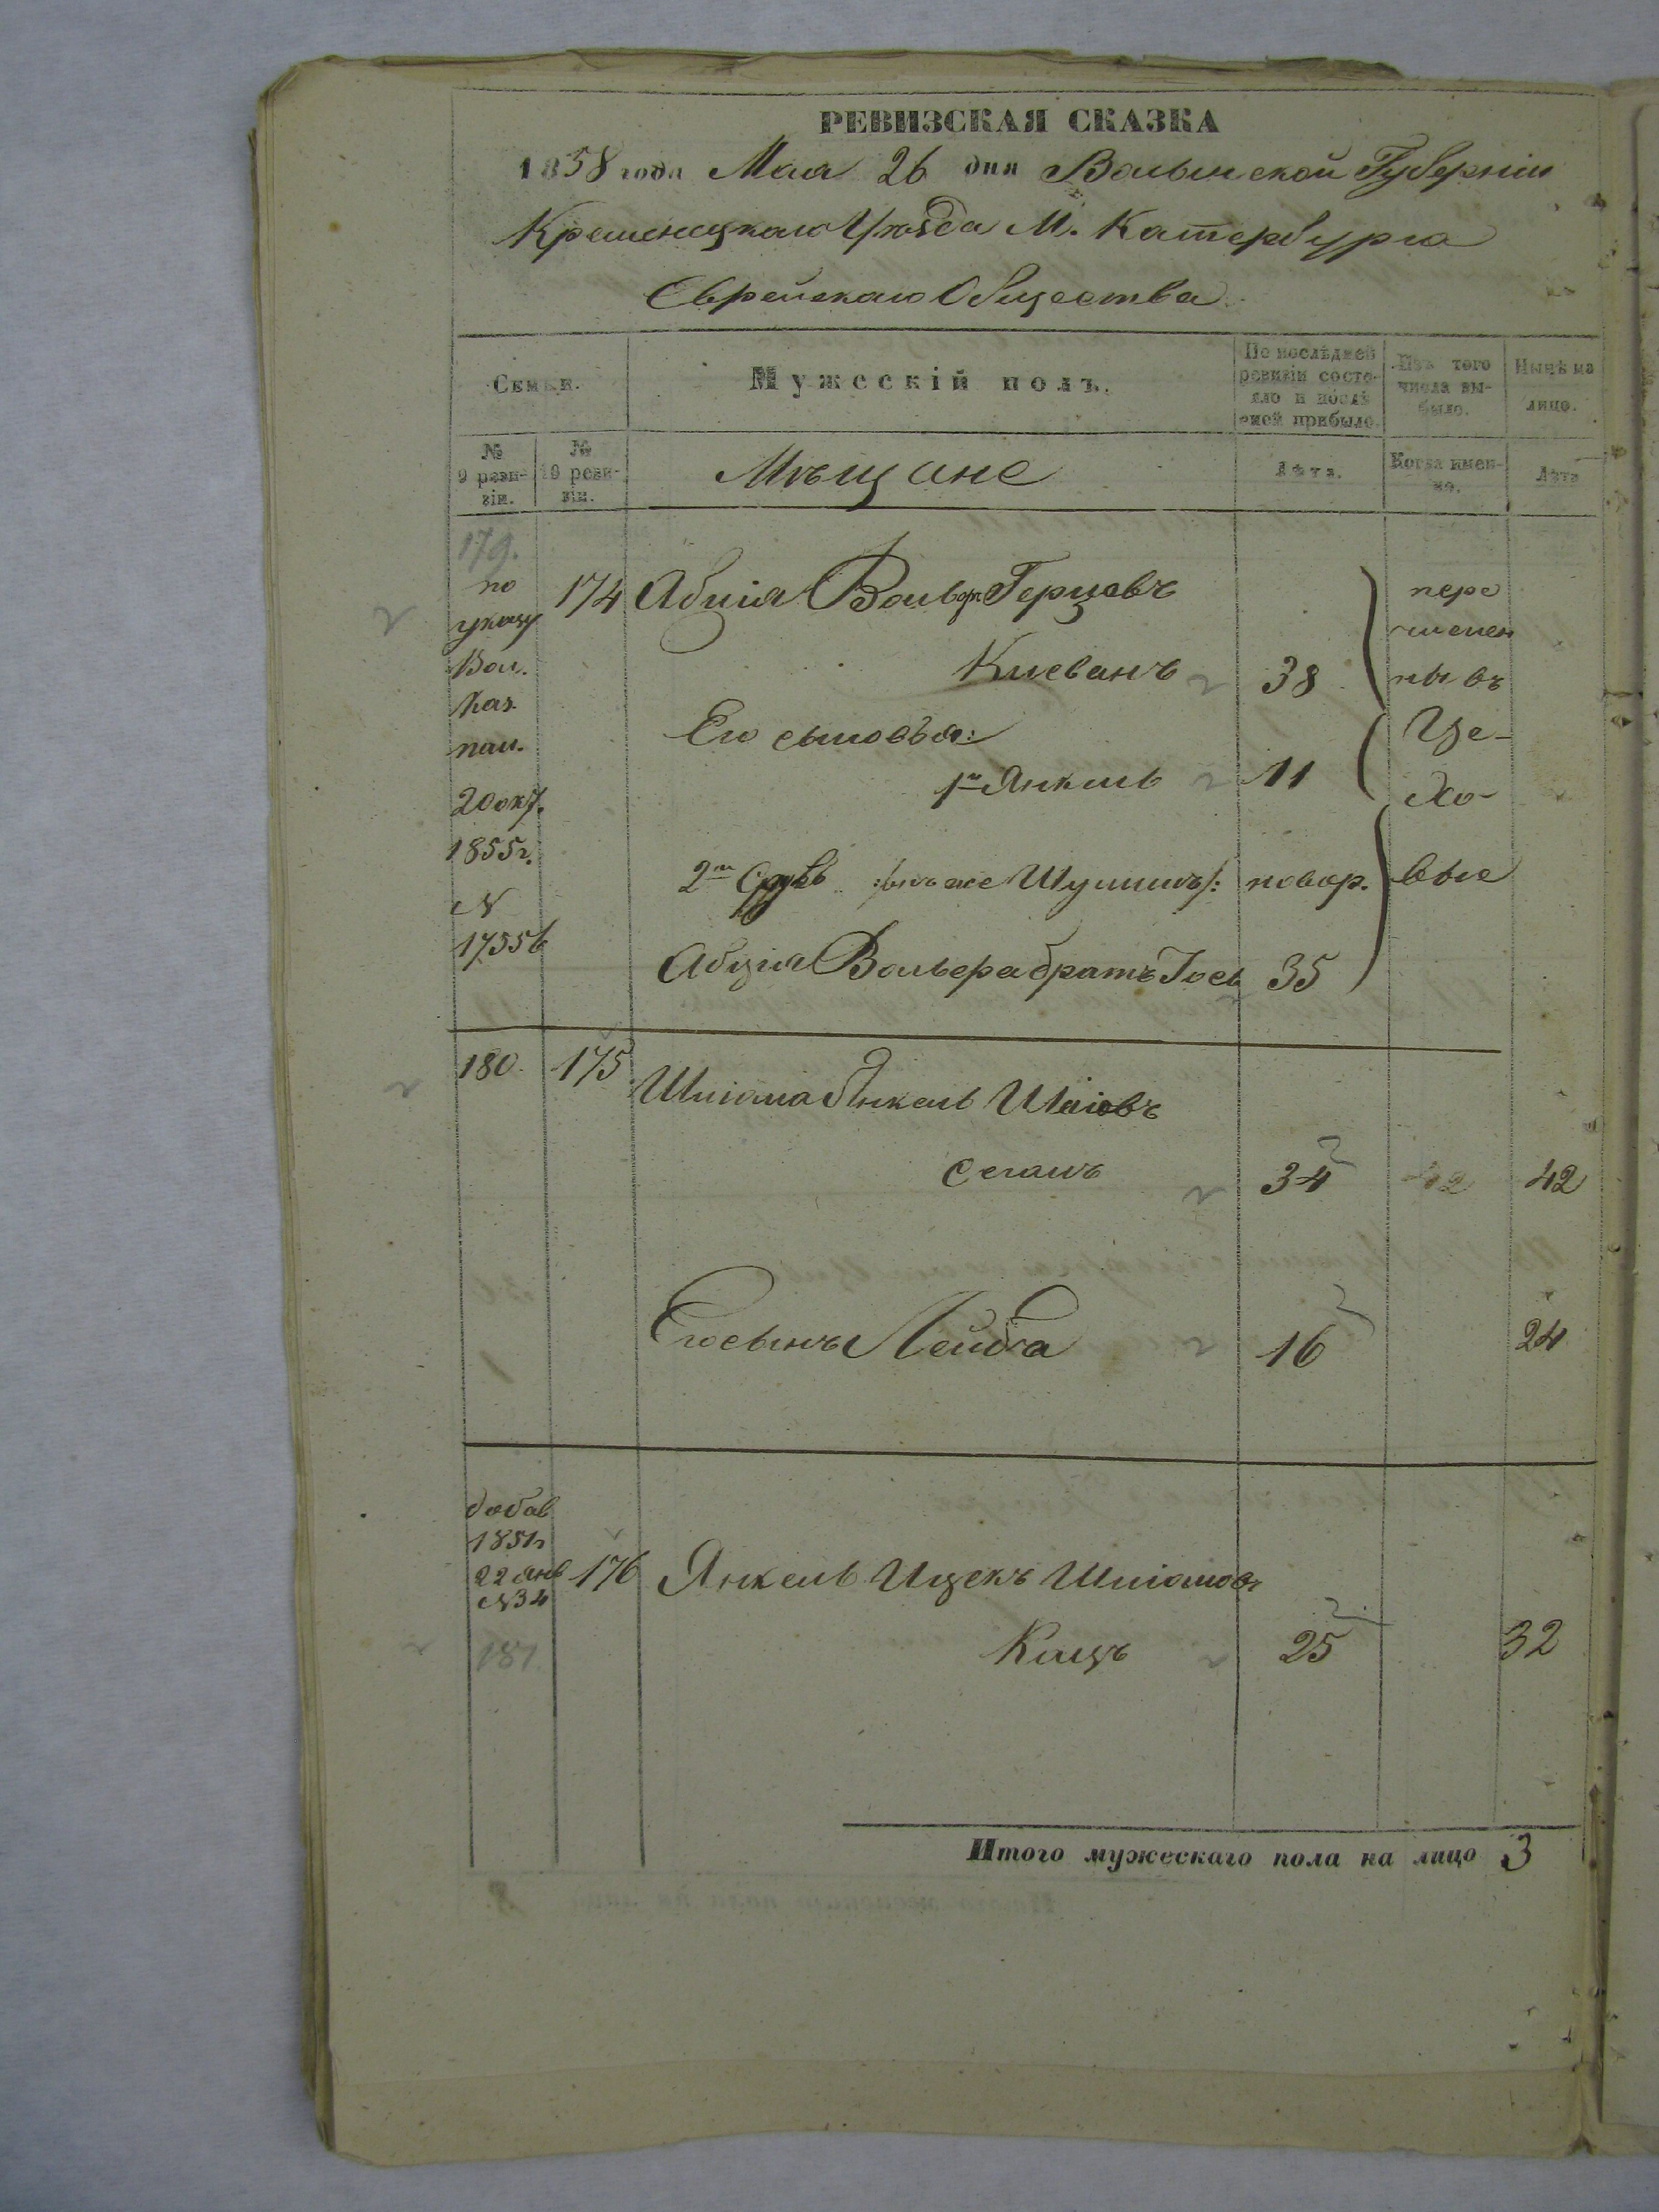 РЕВИЗСКАЯ СКАЗКА
1858 года Мая 26 дня Волынской Губерніи
Кременецкаго Уѣзда М. Катербурга
Еврейскаго Общества
Семьи.
Мужескій полъ.
По послѣдней ревизіи состояло и послѣ оной прибыло.
Изъ того числа выбыло.
Нынѣ на лицо.
№ 9 ревизіи.
№ 10 ревизіи.
Мѣщане
Лѣта.
Когда именно.
Лѣта
179.
по указу Вол. Каз. пал. 20 окт. 1855 г. № 17556
174 Вольф Герцовъ
Киеванъ 38
перечислены въ Цеховые
Его сыновья:
1й Янкель 11
2й онъ же новор.
Вольфа братъ Іось 35
180. 175 Шліома Янкель Шаіовъ
Сегалъ 34 42 42
Его сынъ Лейба 16 24
добав 1851 г 22 Янв №34
176 Янкель Ицекъ Шліомов
181 Кацъ 25 32
Итого мужескаго пола на лицо 3